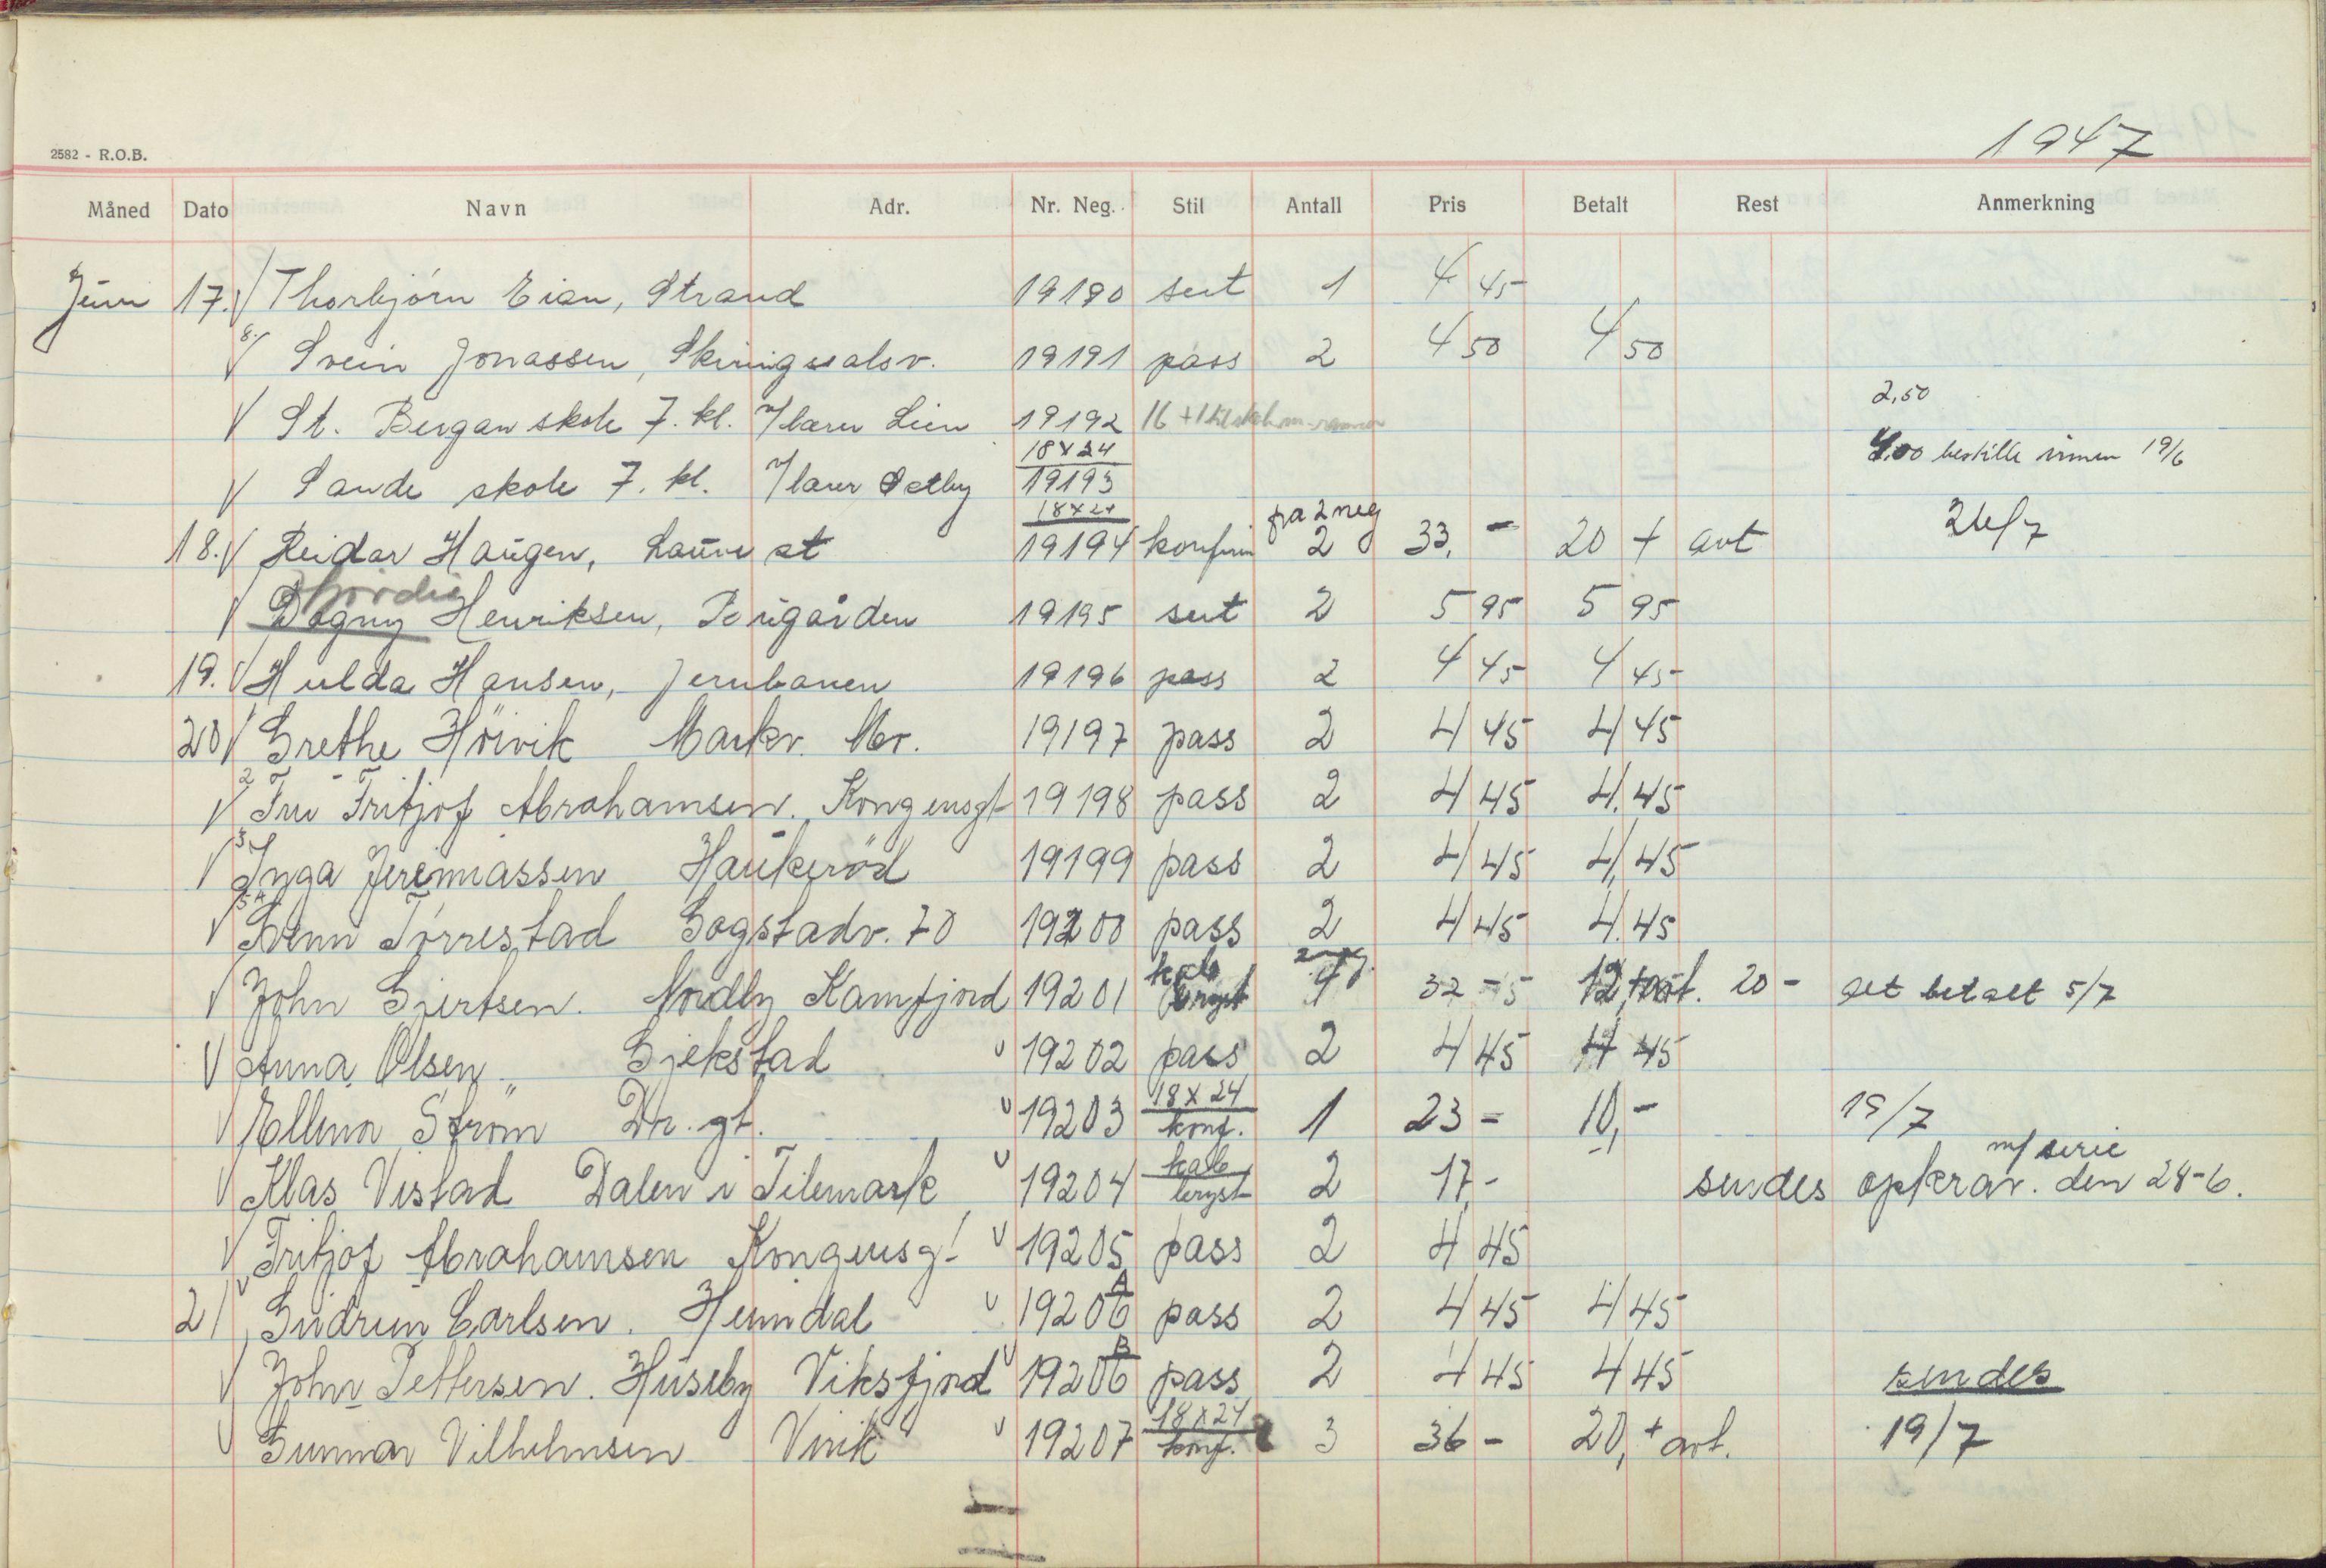 1947
2582 - R.O.B.
Måned Dato Navn Adr. Nr. Neg. Stil Antall Pris Betalt Rest Anmerkning
Juni 17. Thorbjörn Eian, Strand 19190 sert 1 4 45
Svein Jonassen, Skiringssalsv. 19191 pass 2 4 50 4 50
2,50
St. Bergan skole 7. kl. v/ lærer Lien 19192 16 + 1
18x24
4.00 bestille innen 19/6
Sande skole 7. kl. v/ lærer 19193
18x24
på 2 neg
18. Reidar Haugen, Lauve st 19194 konfirm 2 33, - 20 + avt 26/7
Hjördis
Dagny Henriksen, Bugården 19195 sert 2 5 95 5 95
19. Hulda Hansen, Jernbanen 19196 pass 2 4 45 4 45
20 Grethe Höivik Markv. Nr. 19197 pass 2 4 45 4 45
2 Fru Fritjof Abrahamsen. Kongensgt 19198 pass 2 4 45 4.45
3 Inga Jeremiassen Haukeröd 19199 pass 2 4 45 4,45
Svenn Törrestad Gogstadv. 70 19200 pass 2 4 45 4.45
kab 2 neg.
John Gjertsen. Nordby Kamfjord 19201 bryst 4 32 - 12,+ avt. 20 - alt betalt 5/7
Anna Olsen Gjekstad v 19202 pass 2 4 45 4 45
18 x 24
Ellinor Ström Dr. gt. v 19203 konf. 1 23 - 10,- 19/7
kab m/ serie
Klas Vistad Dalen i Tilemark v 19204 bryst 2 17,- sendes opkrav. den 28-6.
Fritjof Abrahamsen Kongensg! v 19205 pass 2 4 45
A
21 Gudrun Carlsen. Heimdal v 19206 pass 2 4 45 4 45
B
John Pettersen. Huseby Viksfjord v 19206 pass 2 4 45 4 45 sendes
18 x 24
Gunnar Vilhelmsen Virik v 19207 konf. 3 36 - 20,+ avt. 19/7